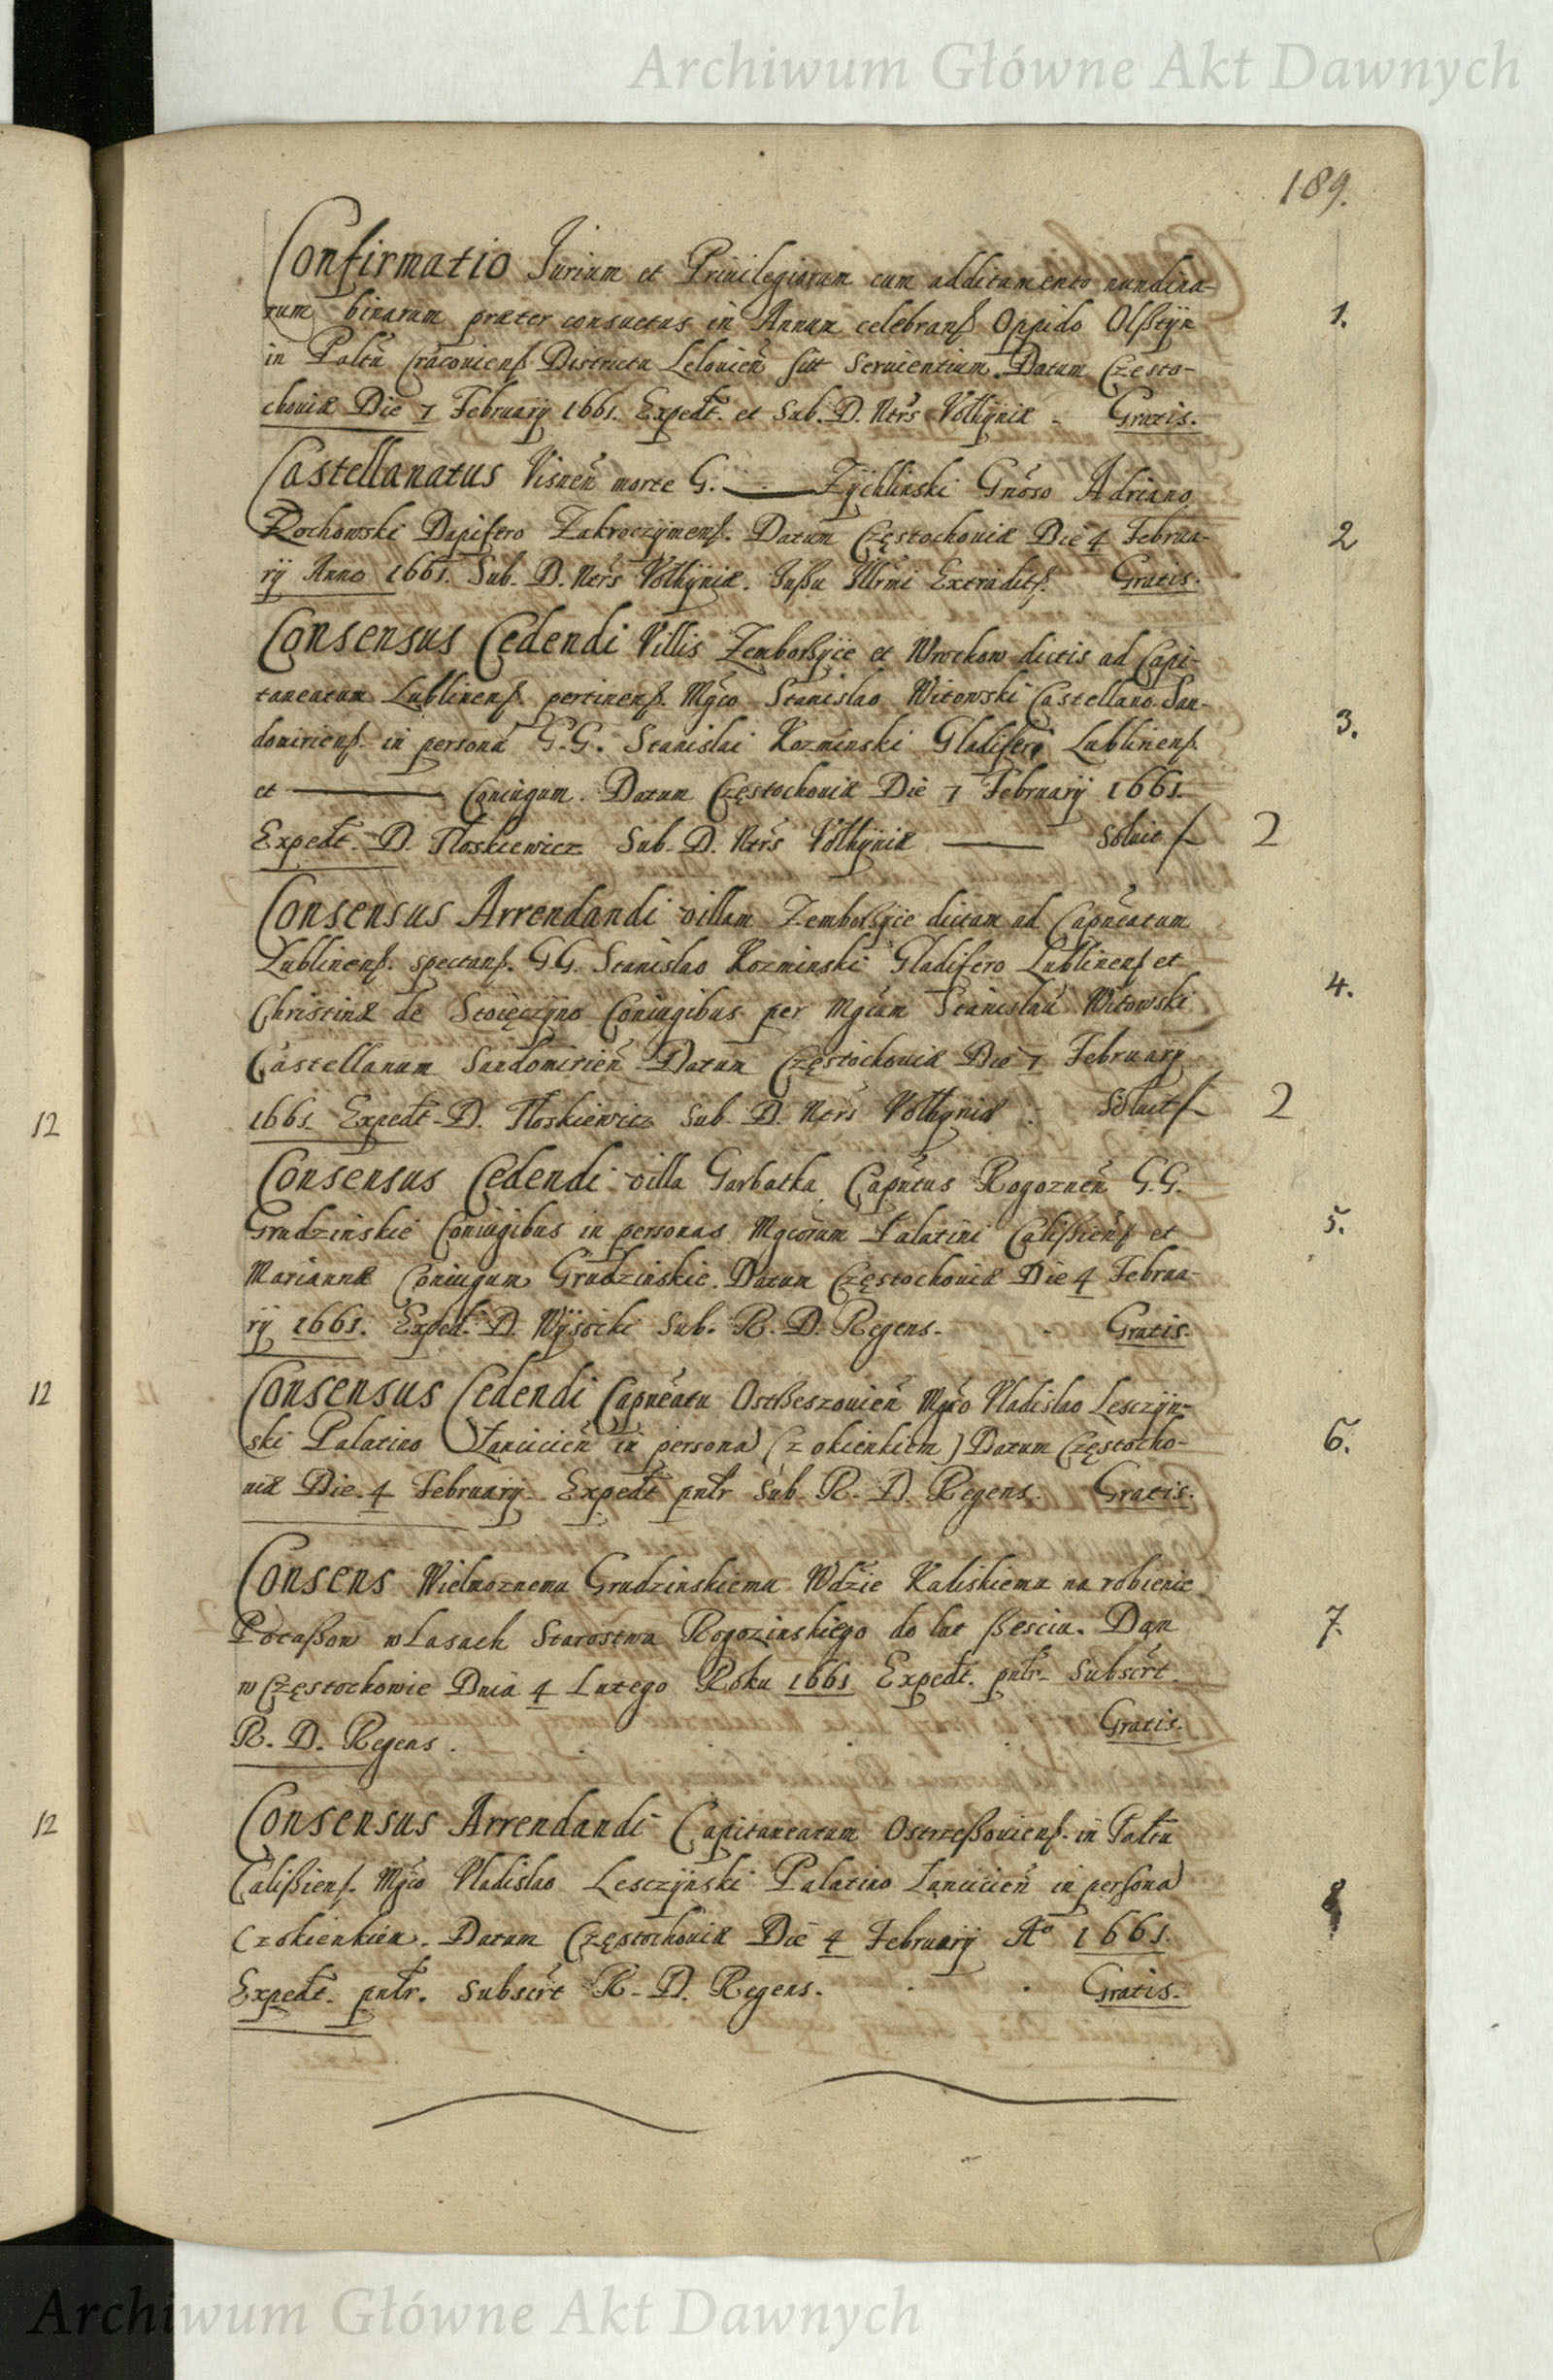 Archiwum Główne Akt Dawnych
189.
Confirmatio Jurium et Priuilegiorum cum additamento nundina-
rum binarum præter consuetas in Annum celebranß Oppido Olßtÿn
in Paltũ Cracouienß Districtu Lelouieñ sitt seruientium. Datum Czesto-
chouiæ Die 7 Februarÿ 1661. Expedt. et Sub. D. Ntrs Volhÿniæ - Gratis.
1.
Castellanatus Visneñ morte G. — Zÿchlinski Gñoso Adriano
Rochowski Dapifero Zakroczÿmenß. Datum Częstochouiæ Die 4 Februa-
rÿ Anno 1661. Sub. D. Ntrs Volhÿniæ. Jußu Illrmi Extraditß. Gratis.
2
Consensus Cedendi Villis Zemborßÿce et Wrotkow dictis ad Capi-
taneatum Lublinenß. pertinenß. Mgco Stanislao Witowski Castellano San-
domirienß. in persona G.G. Stanislai Kozminski Gladiferi Lublinenß.
et — Coniugum. Datum Częstochouiæ Die 7 Februarÿ 1661.
Expedt. D. Tloskiewicz Sub. D. Ntrs Volhÿniæ — Soluit f 2
3.
Consensus Arrendandi villam Zemborßÿce dictam ad Capñeatum
Lublinenß. spectanß. G.G. Stanislao Kozminski Gladifero Lublinenß et
Christinæ de Stoięczÿno Coniugibus per Mgcum Stanislaũ Witowski
Castellanum Sandomirieñ Datum Częstochouiæ Die 7 Februarÿ
1661. Expedt. D. Tloskiewicz Sub. D. Ntrs Volhÿniæ Soluit f 2
4.
Consensus Cedendi villa Garbatka Capñtus Rogozneñ G.G.
Grudzinskie Coniugibus in personas Mgcorum Palatini Calißienß et
Mariannæ Coniugum Grudzinskie. Datum Częstochouiæ Die 4 Februa-
rÿ 1661. Exped. D. Wÿsocki Sub. R. D. Regens. - Gratis.
5.
Consensus Cedendi Capñeatu Ostßeszouieñ Mgco Vladislao Lesczÿn-
ski Palatino Lancicieñ in persona (z okienkiem) Datum Częstocho-
uiæ Die 4 Februarÿ. Expedt pntr Sub R. D. Regens. Gratis.
6.
Consens Wielmoznemu Grudzinskiemu Wdzie Kaliskiemu na robienie
Potaßow w Lasach Starostwa Rogozinskiego do lat ßesciu. Dan
w Częstochowie Dnia 4 Lutego Roku 1661 Expedt. pntr. Subscrt.
R. D. Regens. Gratis.
7.
Consensus Arrendandi Capitaneatum Ostrzeßouienß. in Paltu
Calißienß. Mgco Vladislao Lesczÿnski Palatino Lancicieñ in persona
(z okienkiem. Datum Częstochouiæ Die 4 Februarÿ Aº 1661.
Expedt. pntr. Subscrt R. D. Regens. Gratis.
8
12
12
12
Archiwum Główne Akt Dawnych